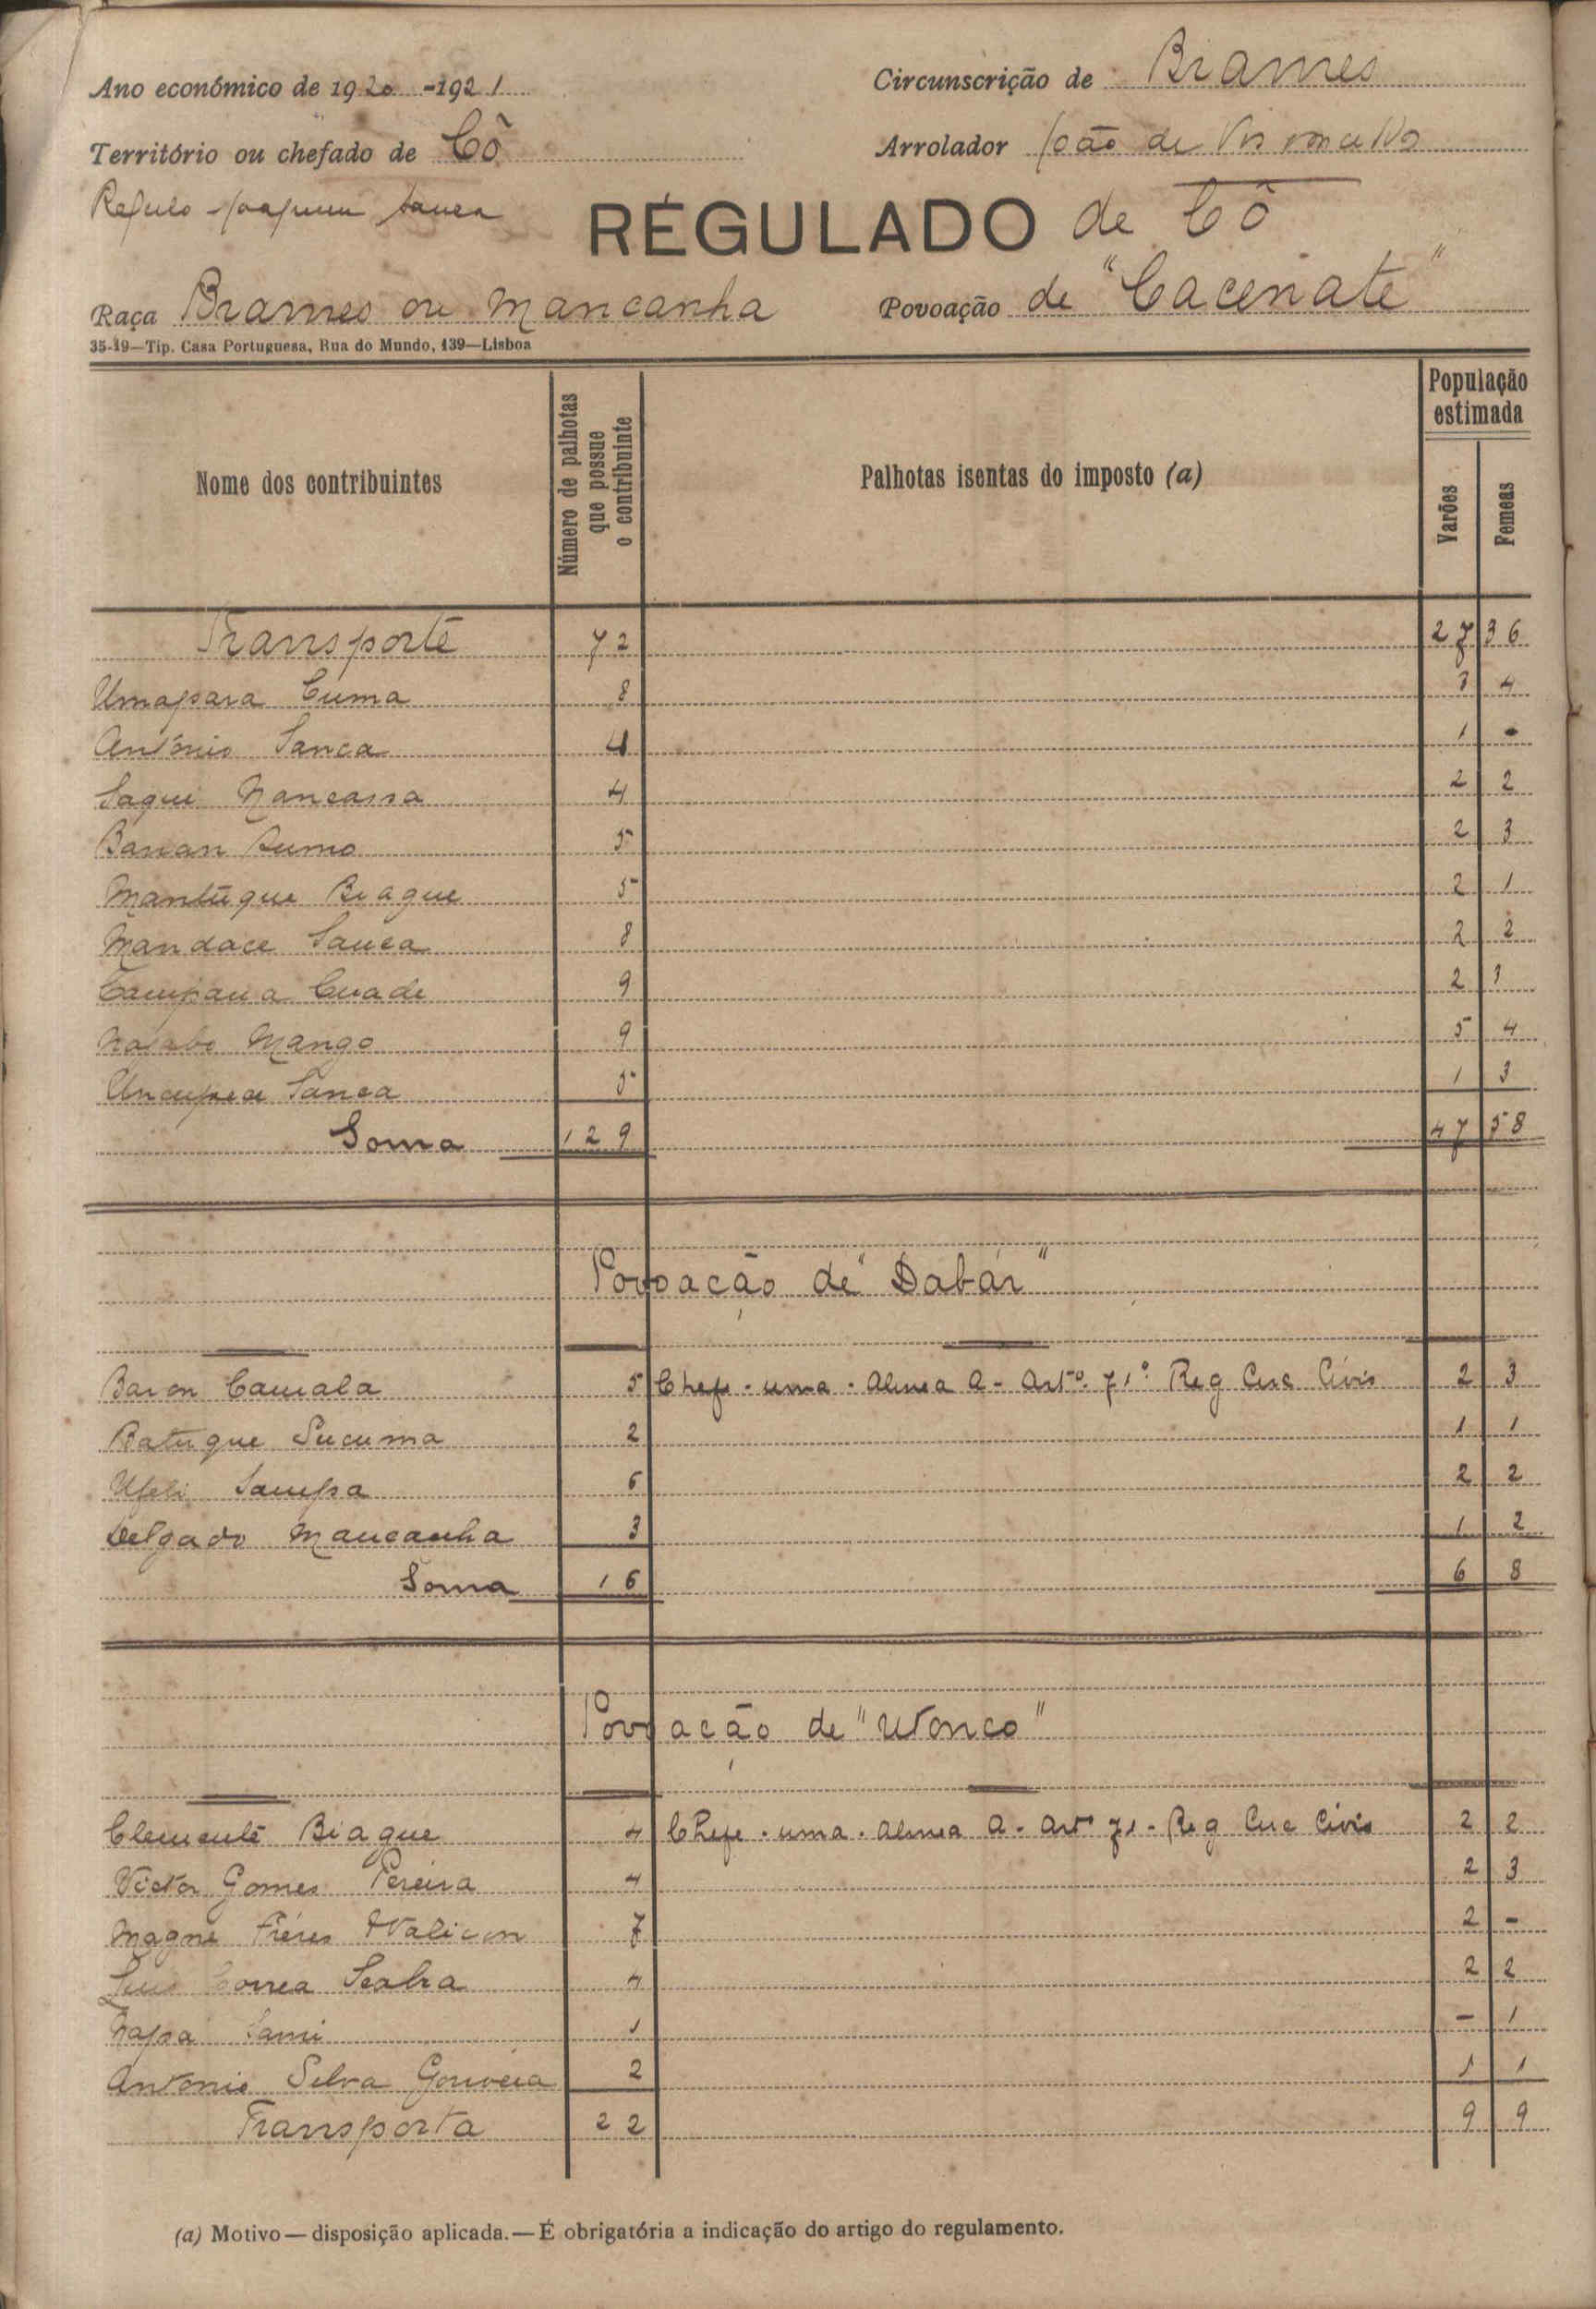 Ano económico de 1920-1921
Circunscrição de Brames
Território ou chefado de Cô
Arrolador João de
Regulo Joaquim Sanca
RÉGULADO de Cô
Raça Brames ou Mancanha
Povoação de "Cacenate"
35-19—Tip. Casa Portuguesa, Rua do Mundo, 139—Lisboa
Nome dos contribuintes
Número de palhotas que possue o contribuinte
Palhotas isentas do imposto (a)
População estimada
Varões
Femeas
Transporte 72 27 36
Umapara Cuma 8 3 4
António Sanca 4 1 -
Saqui Nancassa 4 2 2
Banan 5 2 3
Mantúque Biague 5 2 1
Mandace Sanca 8 2 2
Campana Cuade 9 2 3
Mango 9 5 4
Sanca 5 1 3
Soma 129 47 58
Povoação de "Dabár"
Baron Camala 5 Chefe - uma - Alinea A - Artº. 71º Reg Circ Civis 2 3
Batuque Sucuma 2 1 1
Ufeli Sampa 6 2 2
Delgado Mancanha 3 1 2
Soma 16 6 8
Povoação de "Utonco"
Clemente Biague 4 Chefe - uma - Alinea A - Artº 71 - Reg Circ Civis 2 2
Victor Gomes Pereira 4 2 3
Magne Fréres 7 2 -
Luis Correa Seabra 4 2 2
Napa Sami 1 - 1
Antonio Silva Gouveia 2 1 1
Transporta 22 9 9
(a) Motivo—disposição aplicada.—É obrigatória a indicação do artigo do regulamento.